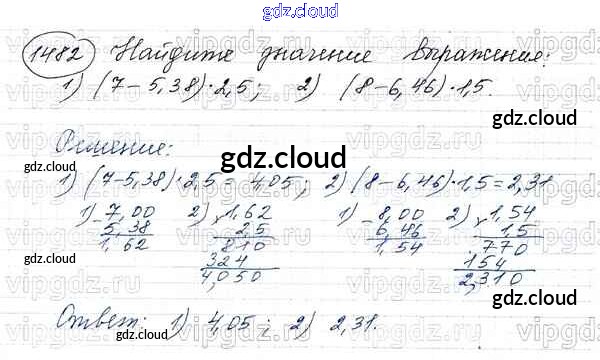 gdz.cloud
1482 Найдите значение выражения:
1) (7-5,38)·2,5; 2) (8-6,46)·1,5.
gdz.cloud
Решение:
gdz.cloud
gdz.cloud
gdz.cloud
1) (7-5,38)·2,5 = 4,05; 2) (8-6,46)·1,5 = 2,31
1) - 7,00 2) × 1,62 1) - 8,00 2) × 1,54
5,38 2,5 6,46 1,5
1,62 810 1,54 770
324 154
4,050 2,310
gdz.cloud
gdz.cloud
Ответ: 1) 4,05; 2) 2,31.
gdz.cloud